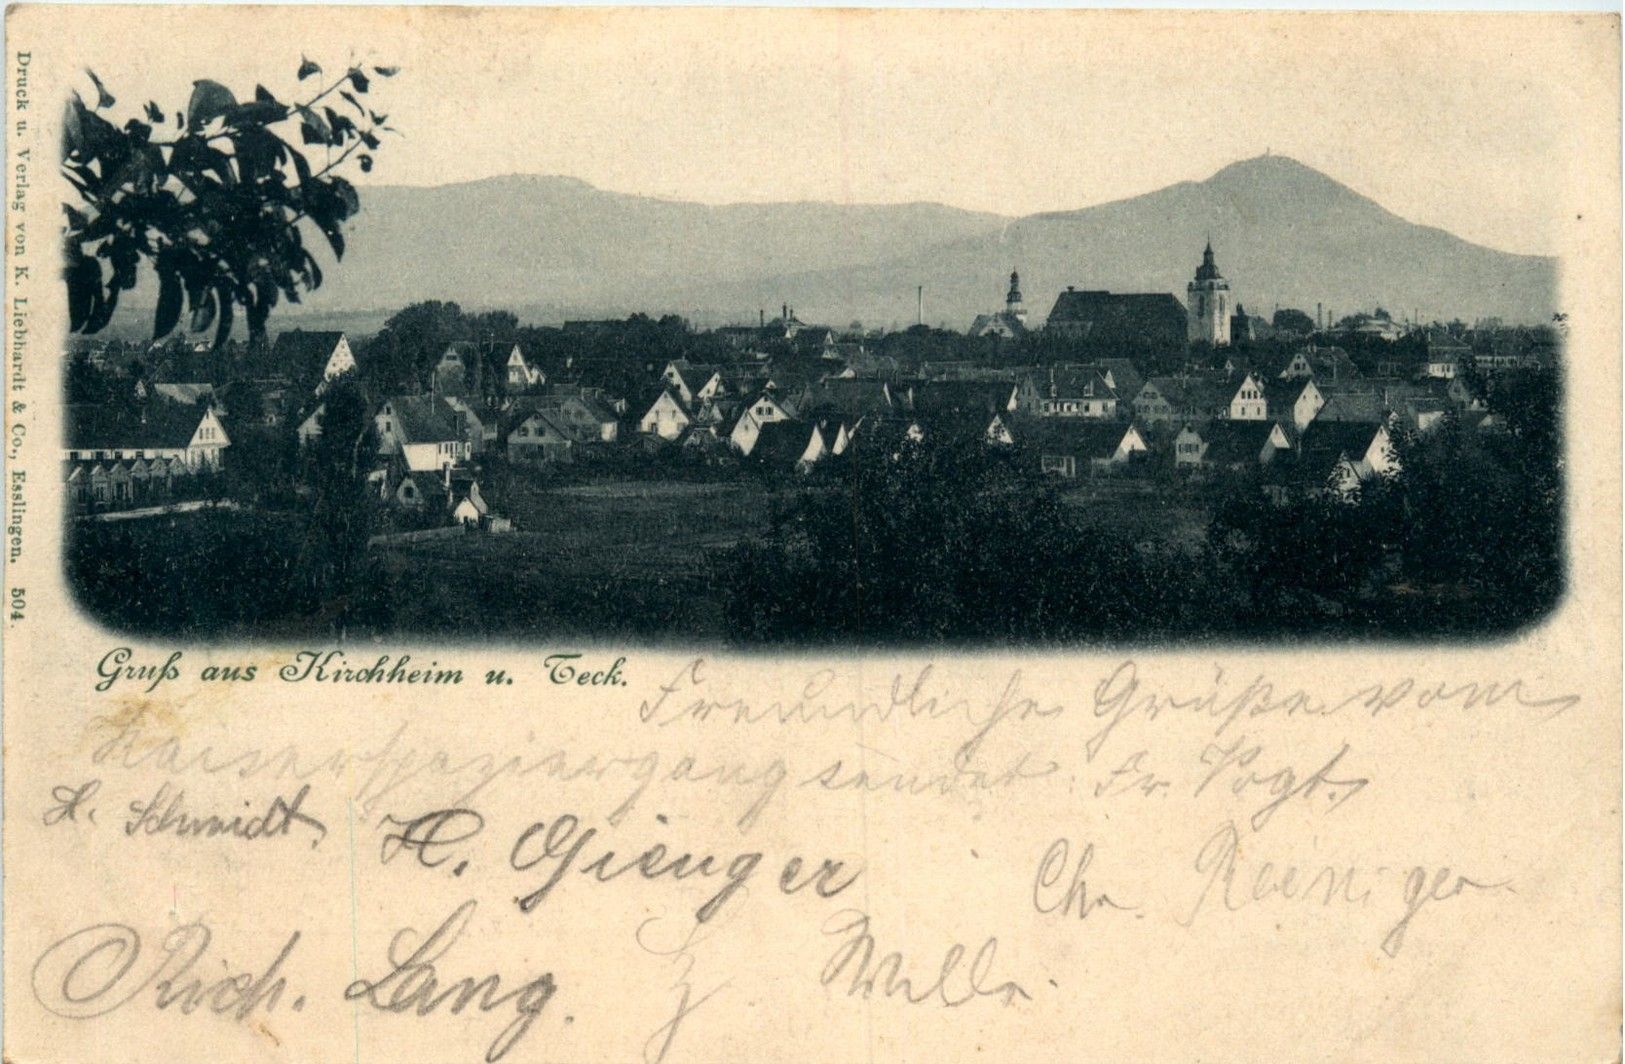 Druck u. Verlag von K. Liebhardt & Co., Esslingen. 504.
Gruß aus Kirchheim u. Teck.
Freundliche Grüße vom
Kaiserspaziergang sendet: Fr. Vogt.
H. Schmidt, H. Gienger
Chr. Reiniger.
Rich. Lang.